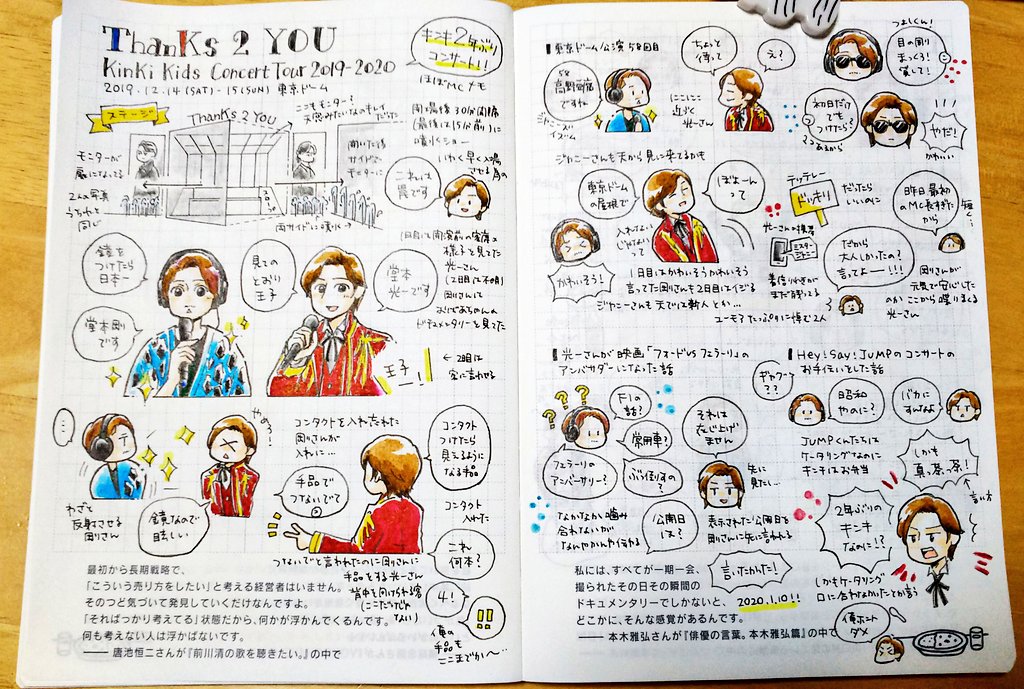 ThanKs 2 YOU
KinKi Kids Concert Tour 2019-2020
2019.12.14(SAT)-15(SUN) 東京ドーム
キンキ2年ぶり
コンサート!!
ほぼMCメモ
ステージ
ThanKs 2 YOU
モニターが
扉になってる
2人の写真
うちわと
同じ
両サイドに
これは
罠です
鏡を
つけたら
日本一
堂本剛
です
見ての
とおり
王子
堂本
光一です
王子
ー!
← 2日目は
客に言わせる
わざと
反射させる
剛さん
鏡なので
眩しい
コンタクトを入れ忘れた
剛さんが
入れに…
手品で
つないでて
コンタクト
つけたら
見えるように
なる手品
コンタクト
入れた
つないでと言われたのに剛さんに
手品をする光一さん
これ
何本?
4!
!!
俺の
手品も
ここまでか〜
最初から長期戦略で、
「こういう売り方をしたい」と考える経営者はいません。
そのつど気づいて発見していくだけなんですよ。
「そればっかり考えてる」状態だから、何かが浮かんでくるんです。
何も考えない人は浮かばないです。
―― 唐池恒二さんが『前川清の歌を聴きたい。』の中で
東京ドーム公演 58回目
58
高野豆腐
ですね
ちょっと
待って
え?
にこにこ
近づく
光一さん
つよしくん!
目の周り
まっくろ!
貸して!
初日だけ
でも
つけたら?
やだ!
かわいい
ジャニーさんも天から見に来てるかも
東京ドーム
の屋根で
ぼよーん
って
入れない
じゃないって
かわいそう!
テッテレー
ドッキリ
だったら
いいのに
昨日最初
のMC長すぎた
から
だから
大人しかったの?
言ってよー!!!
1日目はかわいそうかわいそう
言ってた剛さんも2日目はイジる
ジャニーさんも天では新人とか…
ユーモアたっぷりに悼む2人
剛さんが
元気で安心した
のか ここから喋りまくる
光一さん
光一さんが映画「フォードvsフェラーリ」の
アンバサダーになった話
???
F1の
話?
常用車?
フェラーリの
アンバーサリー?
ぶっ倒すの?
それは
存じ上げ
ません
なかなか噛み
合わないが
なんやかんや伝わる
公開日
は?
先に
見たい…
表示された公開日を
剛さんに先に言われる
言いたかった!
2020.1.10!!
Hey!Say!JUMPのコンサートの
お手伝いをした話
ギャクー?
??
昭和
やのに?
バカに
すんなよ
JUMPくんたちは
ケータリングなのに
キンキはお弁当
しかも
真っ茶っ茶!
言い方
2年ぶりの
キンキ
なのに!?
しかもケータリング
口に合わなかったとか言う
俺ホント
ダメ
私には、すべてが一期一会、
撮られたその日その瞬間の
ドキュメンタリーでしかないと、
どこかに、そんな感覚があるんです。
―― 本木雅弘さんが『俳優の言葉。本木雅弘篇』の中で